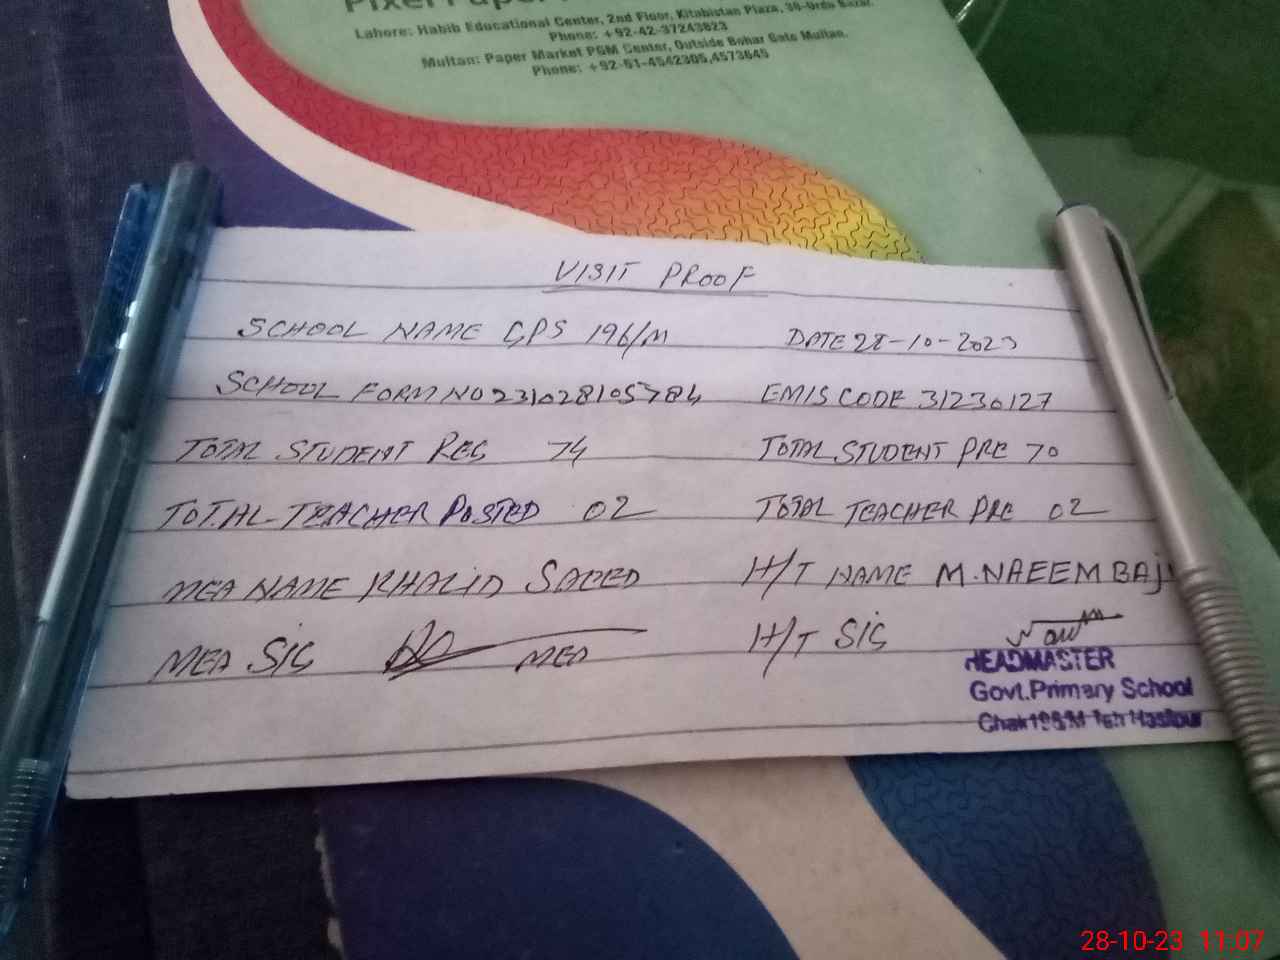 Pixel Paper
Lahore: Habib Educational Center, 2nd Floor, Kitabistan Plaza, 38-Urdu Bazar.
Phone: +92-42-37243823
Multan: Paper Market PGM Center, Outside Bohar Gate Multan.
Phone: +92-61-4542305,4573645
VISIT PROOF
SCHOOL NAME GPS 196/M DATE 28-10-2023
SCHOOL FORM NO 231028105784 EMIS CODE 31230127
TOTAL STUDENT REG 74 TOTAL STUDENT PRE 70
TOTAL TEACHER POSTED 02 TOTAL TEACHER PRE 02
MEA NAME KHALID SAEED H/T NAME M.NAEEM
MEA SIG MEA H/T SIG
HEADMASTER
Govt.Primary School
Chak 196/M Teh Hasilpur
28-10-23 11:07